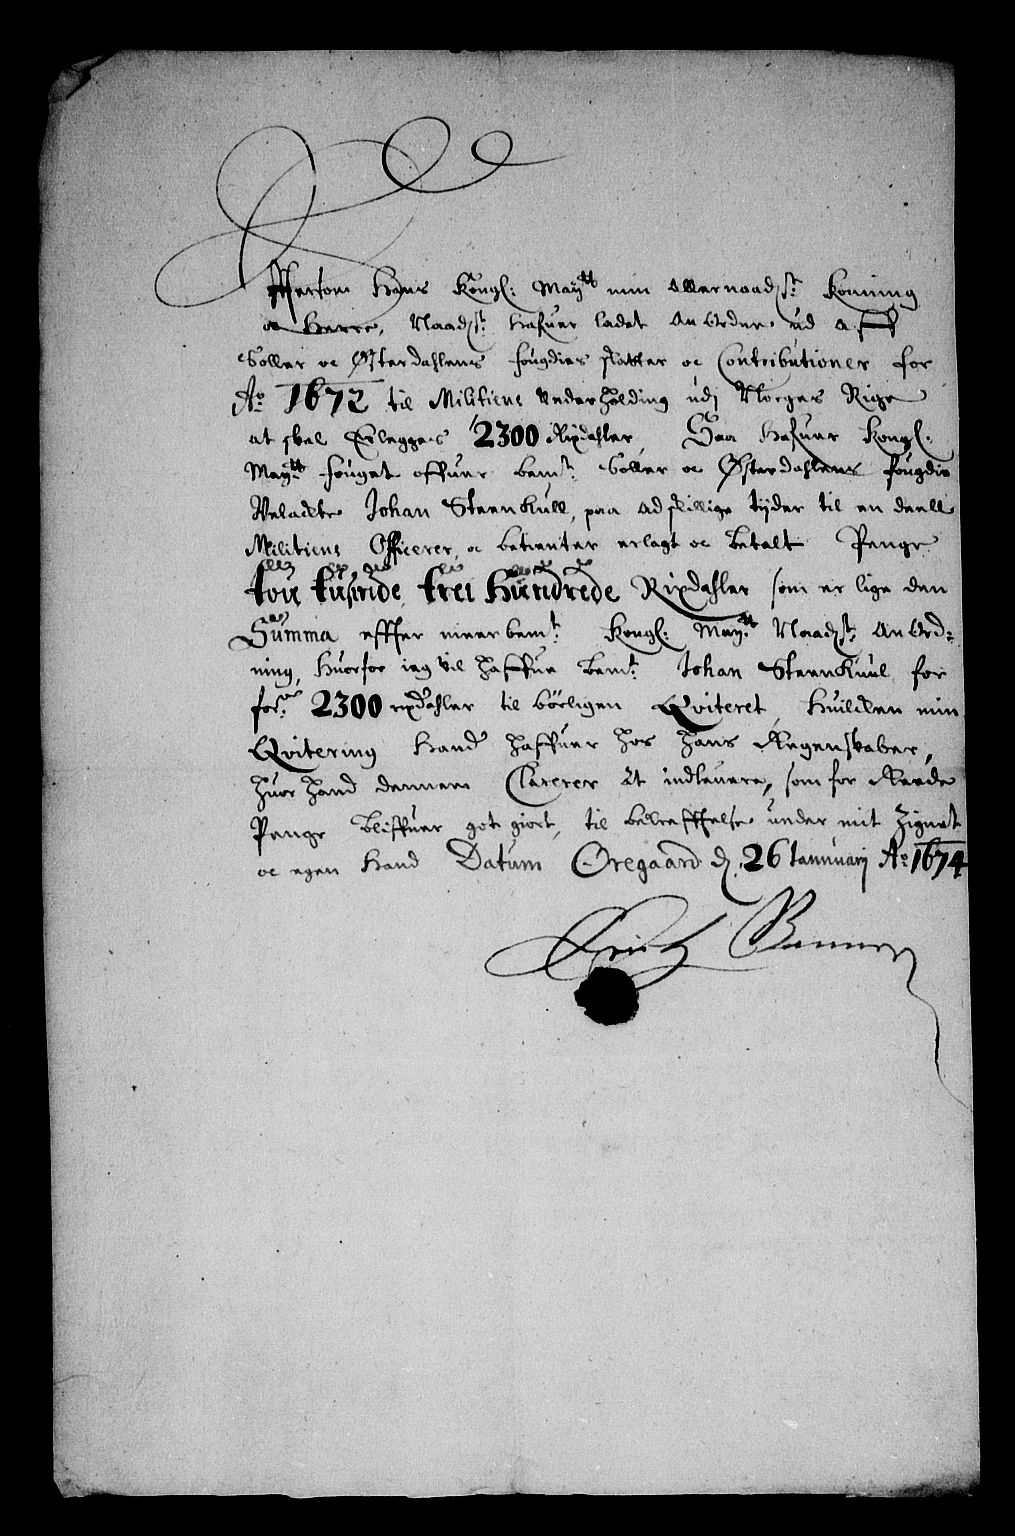 Efftersom Hans Kongl: Maytt min Allernaadst: Konning
oc Herre, Naadst: hafuer ladet an Ordne ud aff
Soller oc Østerdahlens fougdies skatter oc Contributioner for
Ao 1672 til Militiens Underholding udj Norges Rige
at skal Erlegges 2300 Rixdahler, Saa hafuer Kongl:
Maytts fouget offuer bemt: Soller oc Østerdahlens fougdie
Velacte Johan Steenkull, paa adskillige tyder til en deell
Militiens Officerer, oc betienter erlagt oc betalt Penge
tou tusinde, trei Hundrede Rixdahler som er lige den
Summa effter meerbemt: Kongl: Maytt: Naadst: an Ord-
ning, huorfor ieg vil haffue bemt: Johan Steenkuul for
forne: 2300 rixdahler til börligen Qviteret, huilcken min
Qvitering hand haffuer hos hans Regenskaber,
huor hand dennem Clarerer at indleuere, som for Reede
Penge bliffuer got giort, til bekrefftelse under mit Zignet
oc egen hand Datum Oregaard d. 26 Januarij Ao 1674
Fritz Brunov